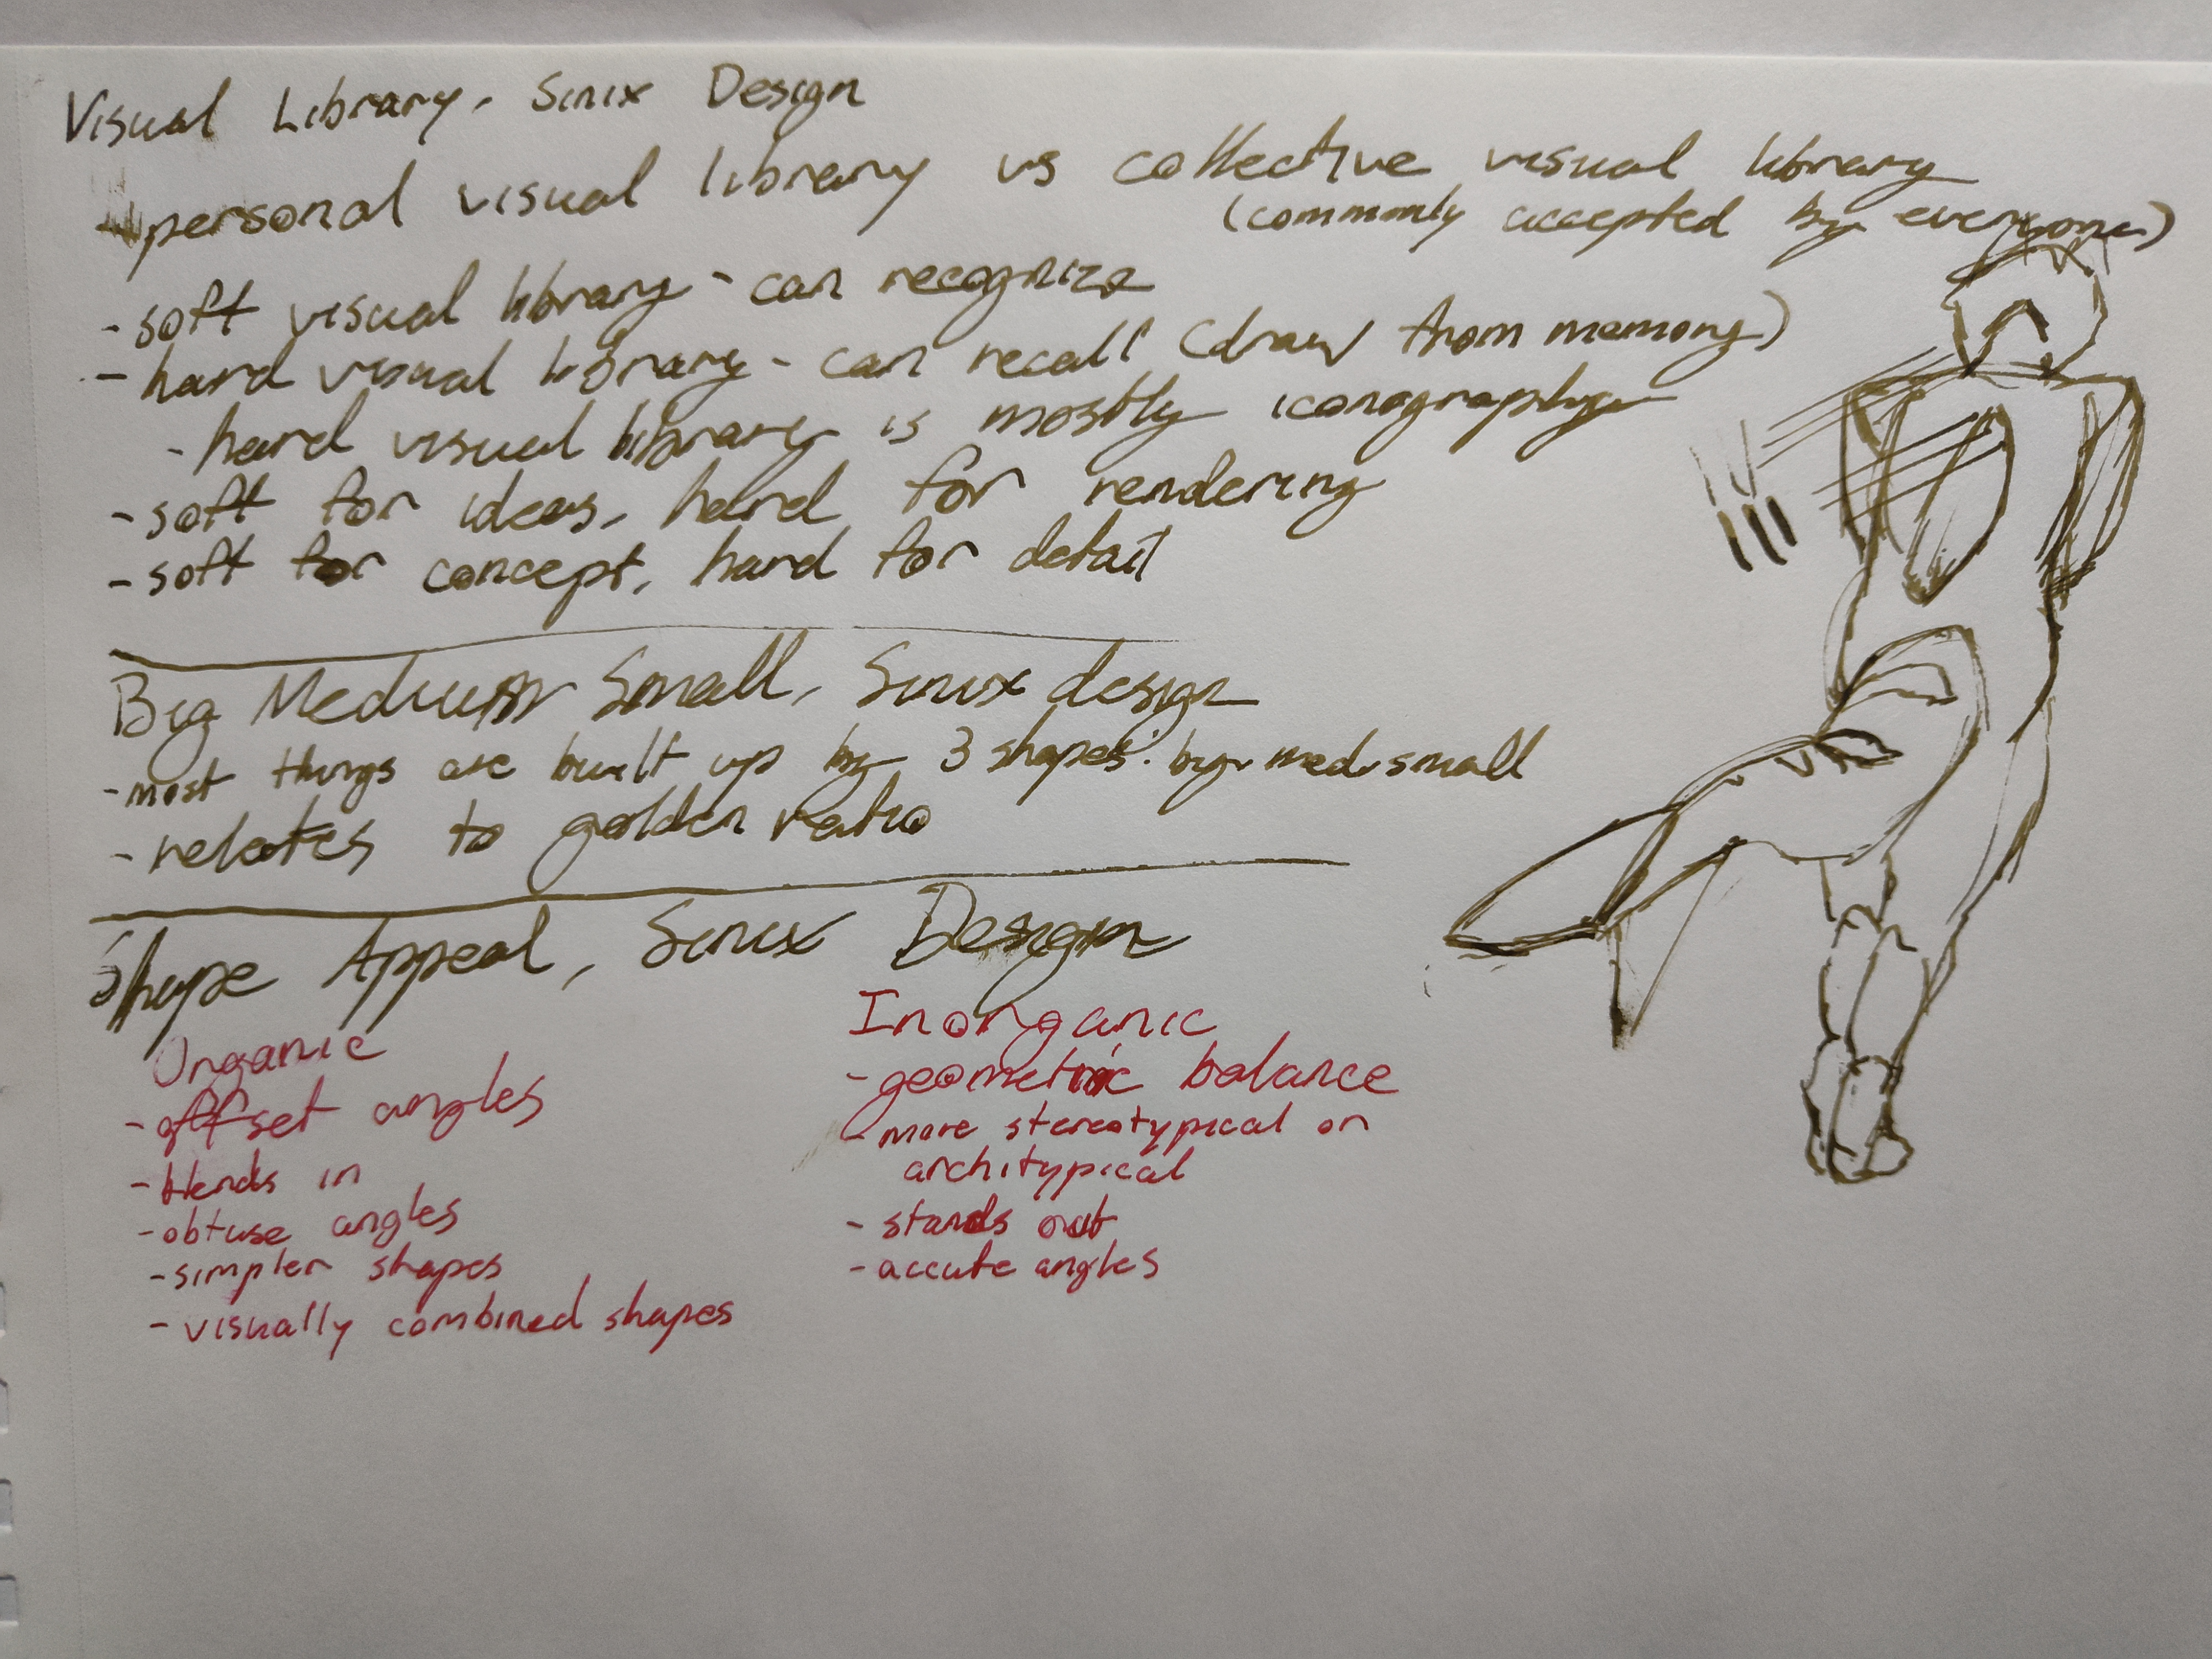 Visual Library, Sinix Design
- personal visual library vs collective visual library
(commonly accepted by everyone)
- soft visual library - can recognize
- hard visual library - can recall (draw from memory)
- hard visual library is mostly iconography
- soft for ideas, hard for rendering
- soft for concept, hard for detail
Big Medium Small, Sinix design
- most things are built up by 3 shapes: big, med, small
- relates to golden ratio
Shape Appeal, Sinix Design
Organic
- offset angles
- blends in
- obtuse angles
- simpler shapes
- visually combined shapes
Inorganic
- geometric balance
- more stereotypical or
architypical
- stands out
- accute angles